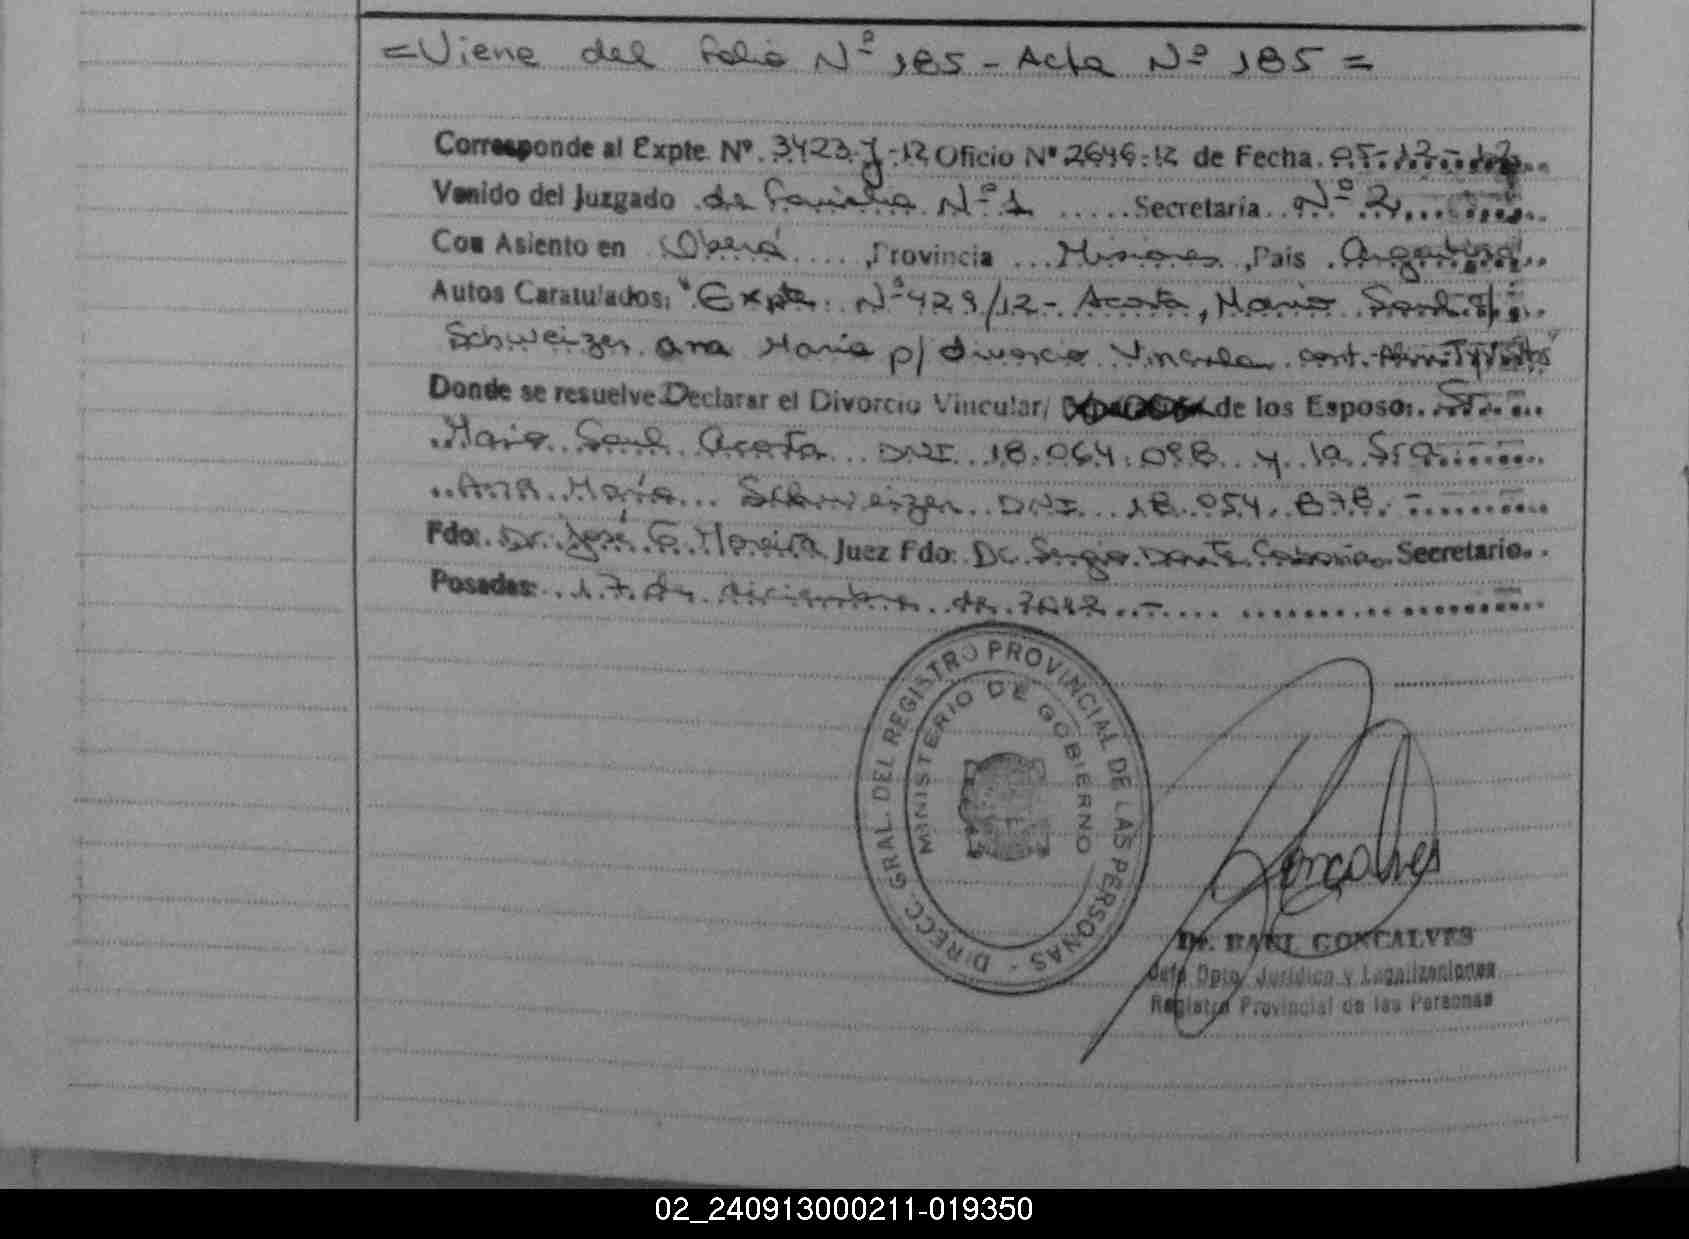 =Viene del folio Nº 185 - Acta Nº 185 =
Corresponde al Expte. Nº. 3423-J-12 Oficio Nº 2646-12 de Fecha. 05-12-12
Venido del Juzgado de Familia Nº 1 ..... Secretaria.. Nº 2
Con Asiento en Oberá ....,Provincia ... Misiones ,Pais . Argentina
Autos Caratulados: "Expte. Nº 429/12 - Acosta, Mario Saul c/
Schweizer Ana Maria p/ divorcio Vincular cont.
Donde se resuelve Declarar el Divorcio Vincular/ de los Esposo:. Sr.
Mario Saul Acosta... DNI 18.064.098 y la Sra
Ana María... Schweizer DNI... 18.054.878. -
Fdo:. Dr. José G. Moreira Juez Fdo: Dr. Sergio Secretario..
Posadas: 17 de diciembre de 2012..-
DIRECC. GRAL. DEL REGISTRO PROVINCIAL DE LAS PERSONAS -
MINISTERIO DE GOBIERNO
Goncalves
Dr. RAUL GONCALVES
Jefe Dpto. Jurídico y Legalizaciones
Registro Provincial de las Personas
02_240913000211-019350